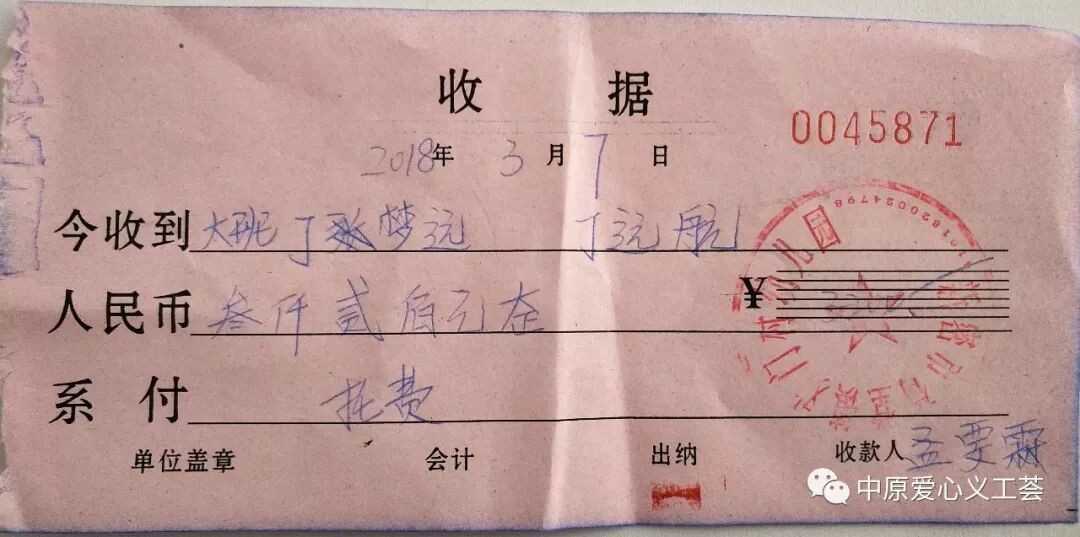 收 据
0045871
2018年 3 月 7 日
今收到 大班 丁梦远 丁远航
人民币 叁仟贰佰元整
¥ 3200
系付 托费
单位盖章 会计 出纳 收款人 孟雯霖
中原爱心义工荟